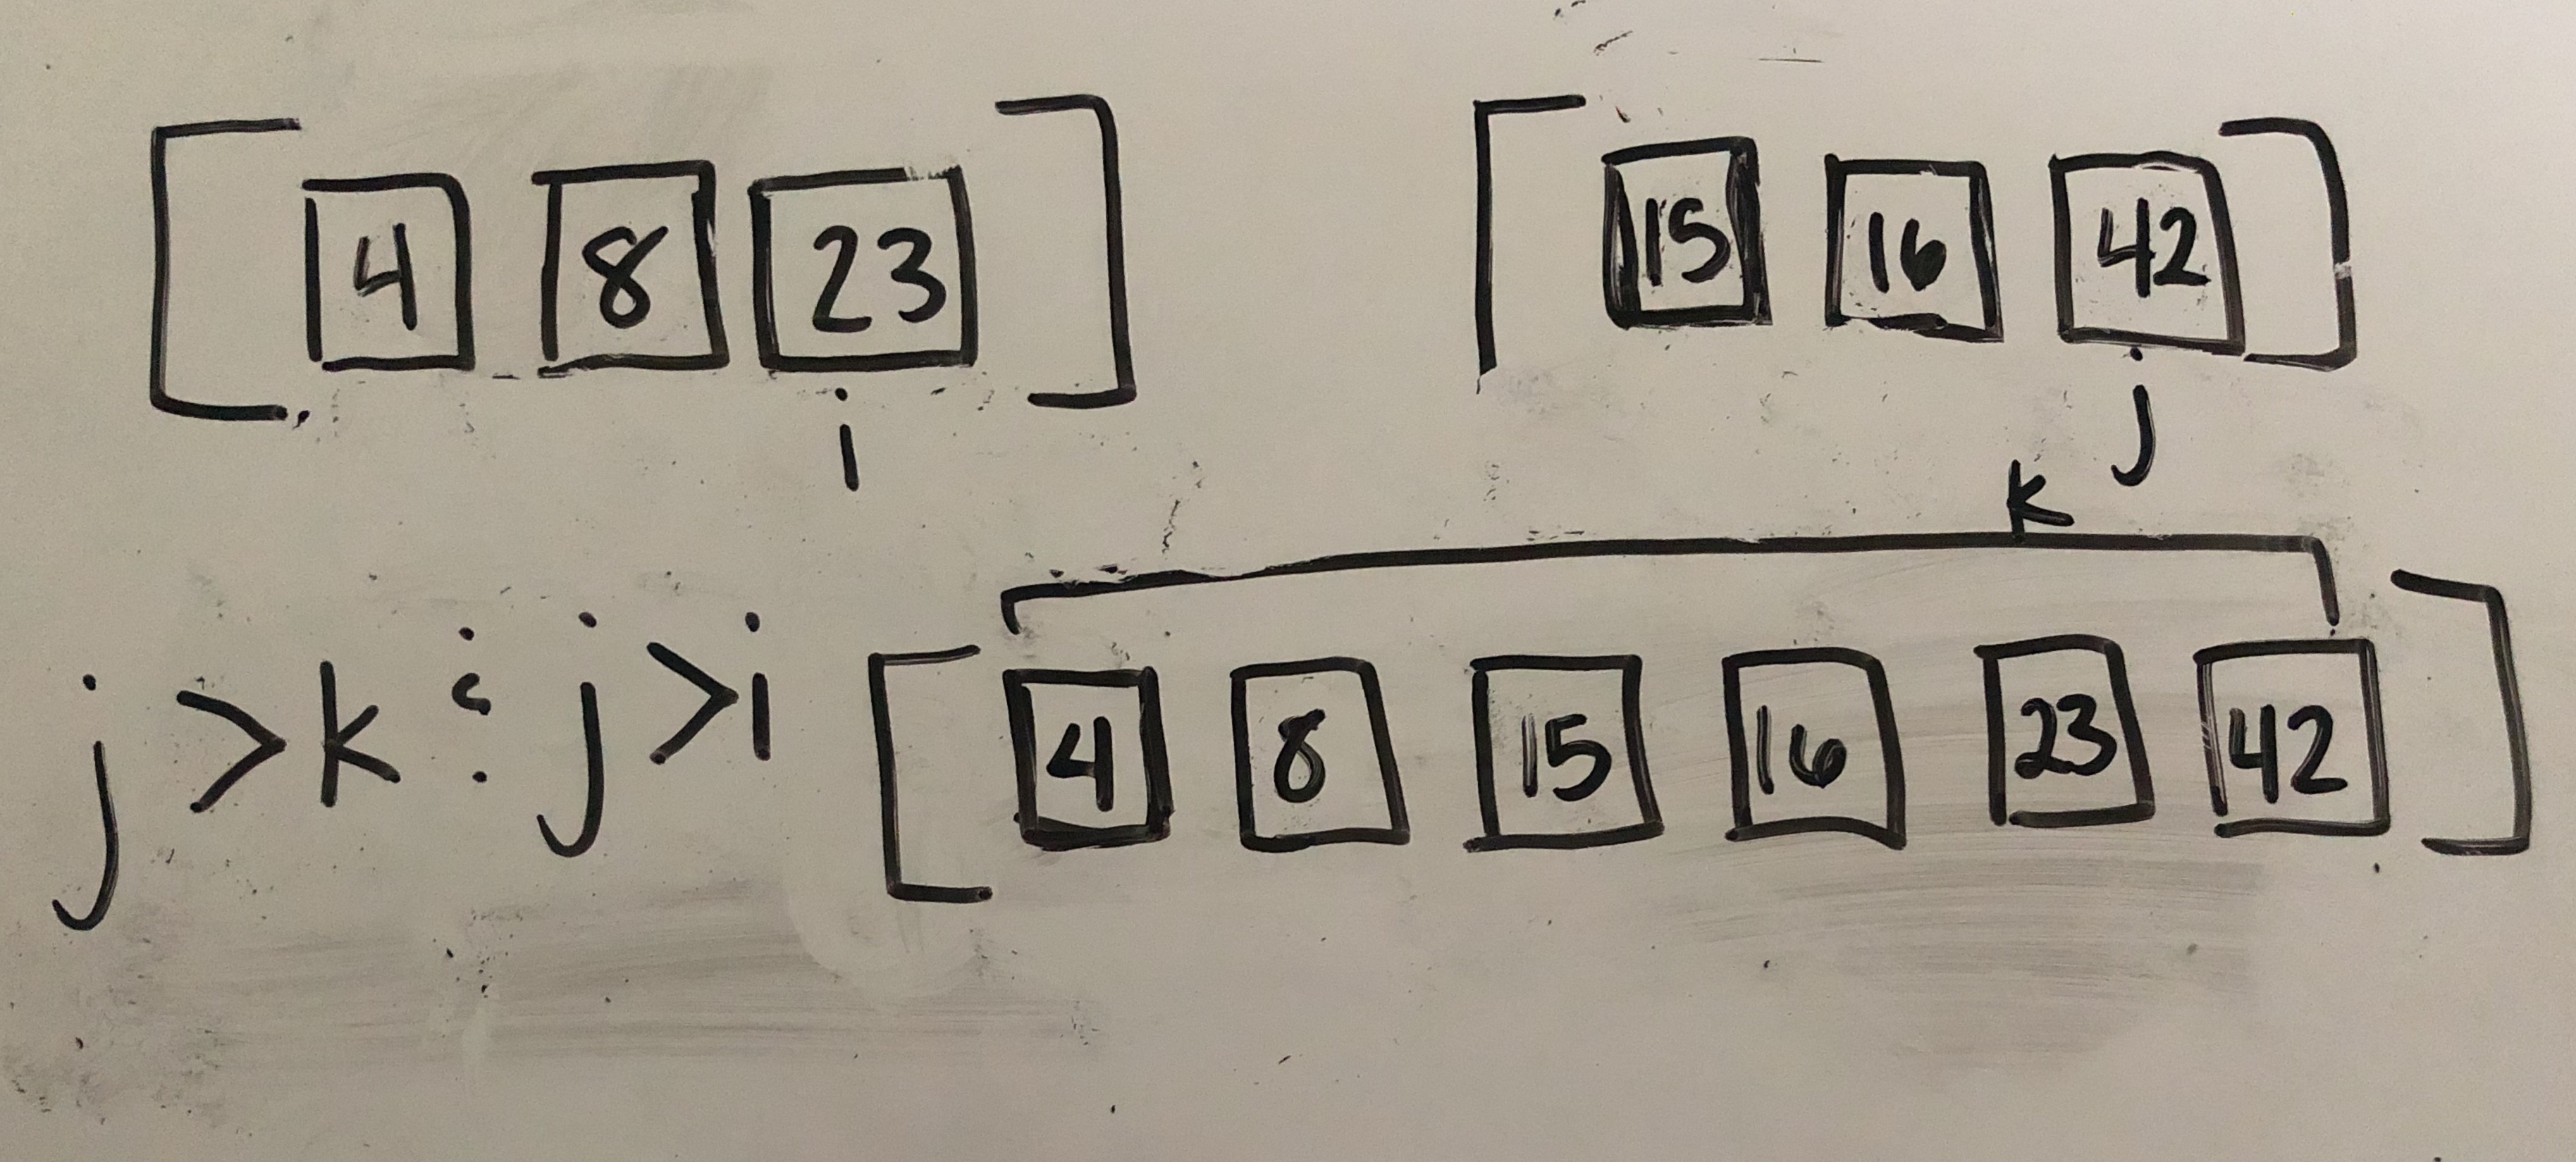 [ 4 8 23 ] [ 15 16 42 ]
i j
k
j > k j > i [ 4 8 15 16 23 42 ]